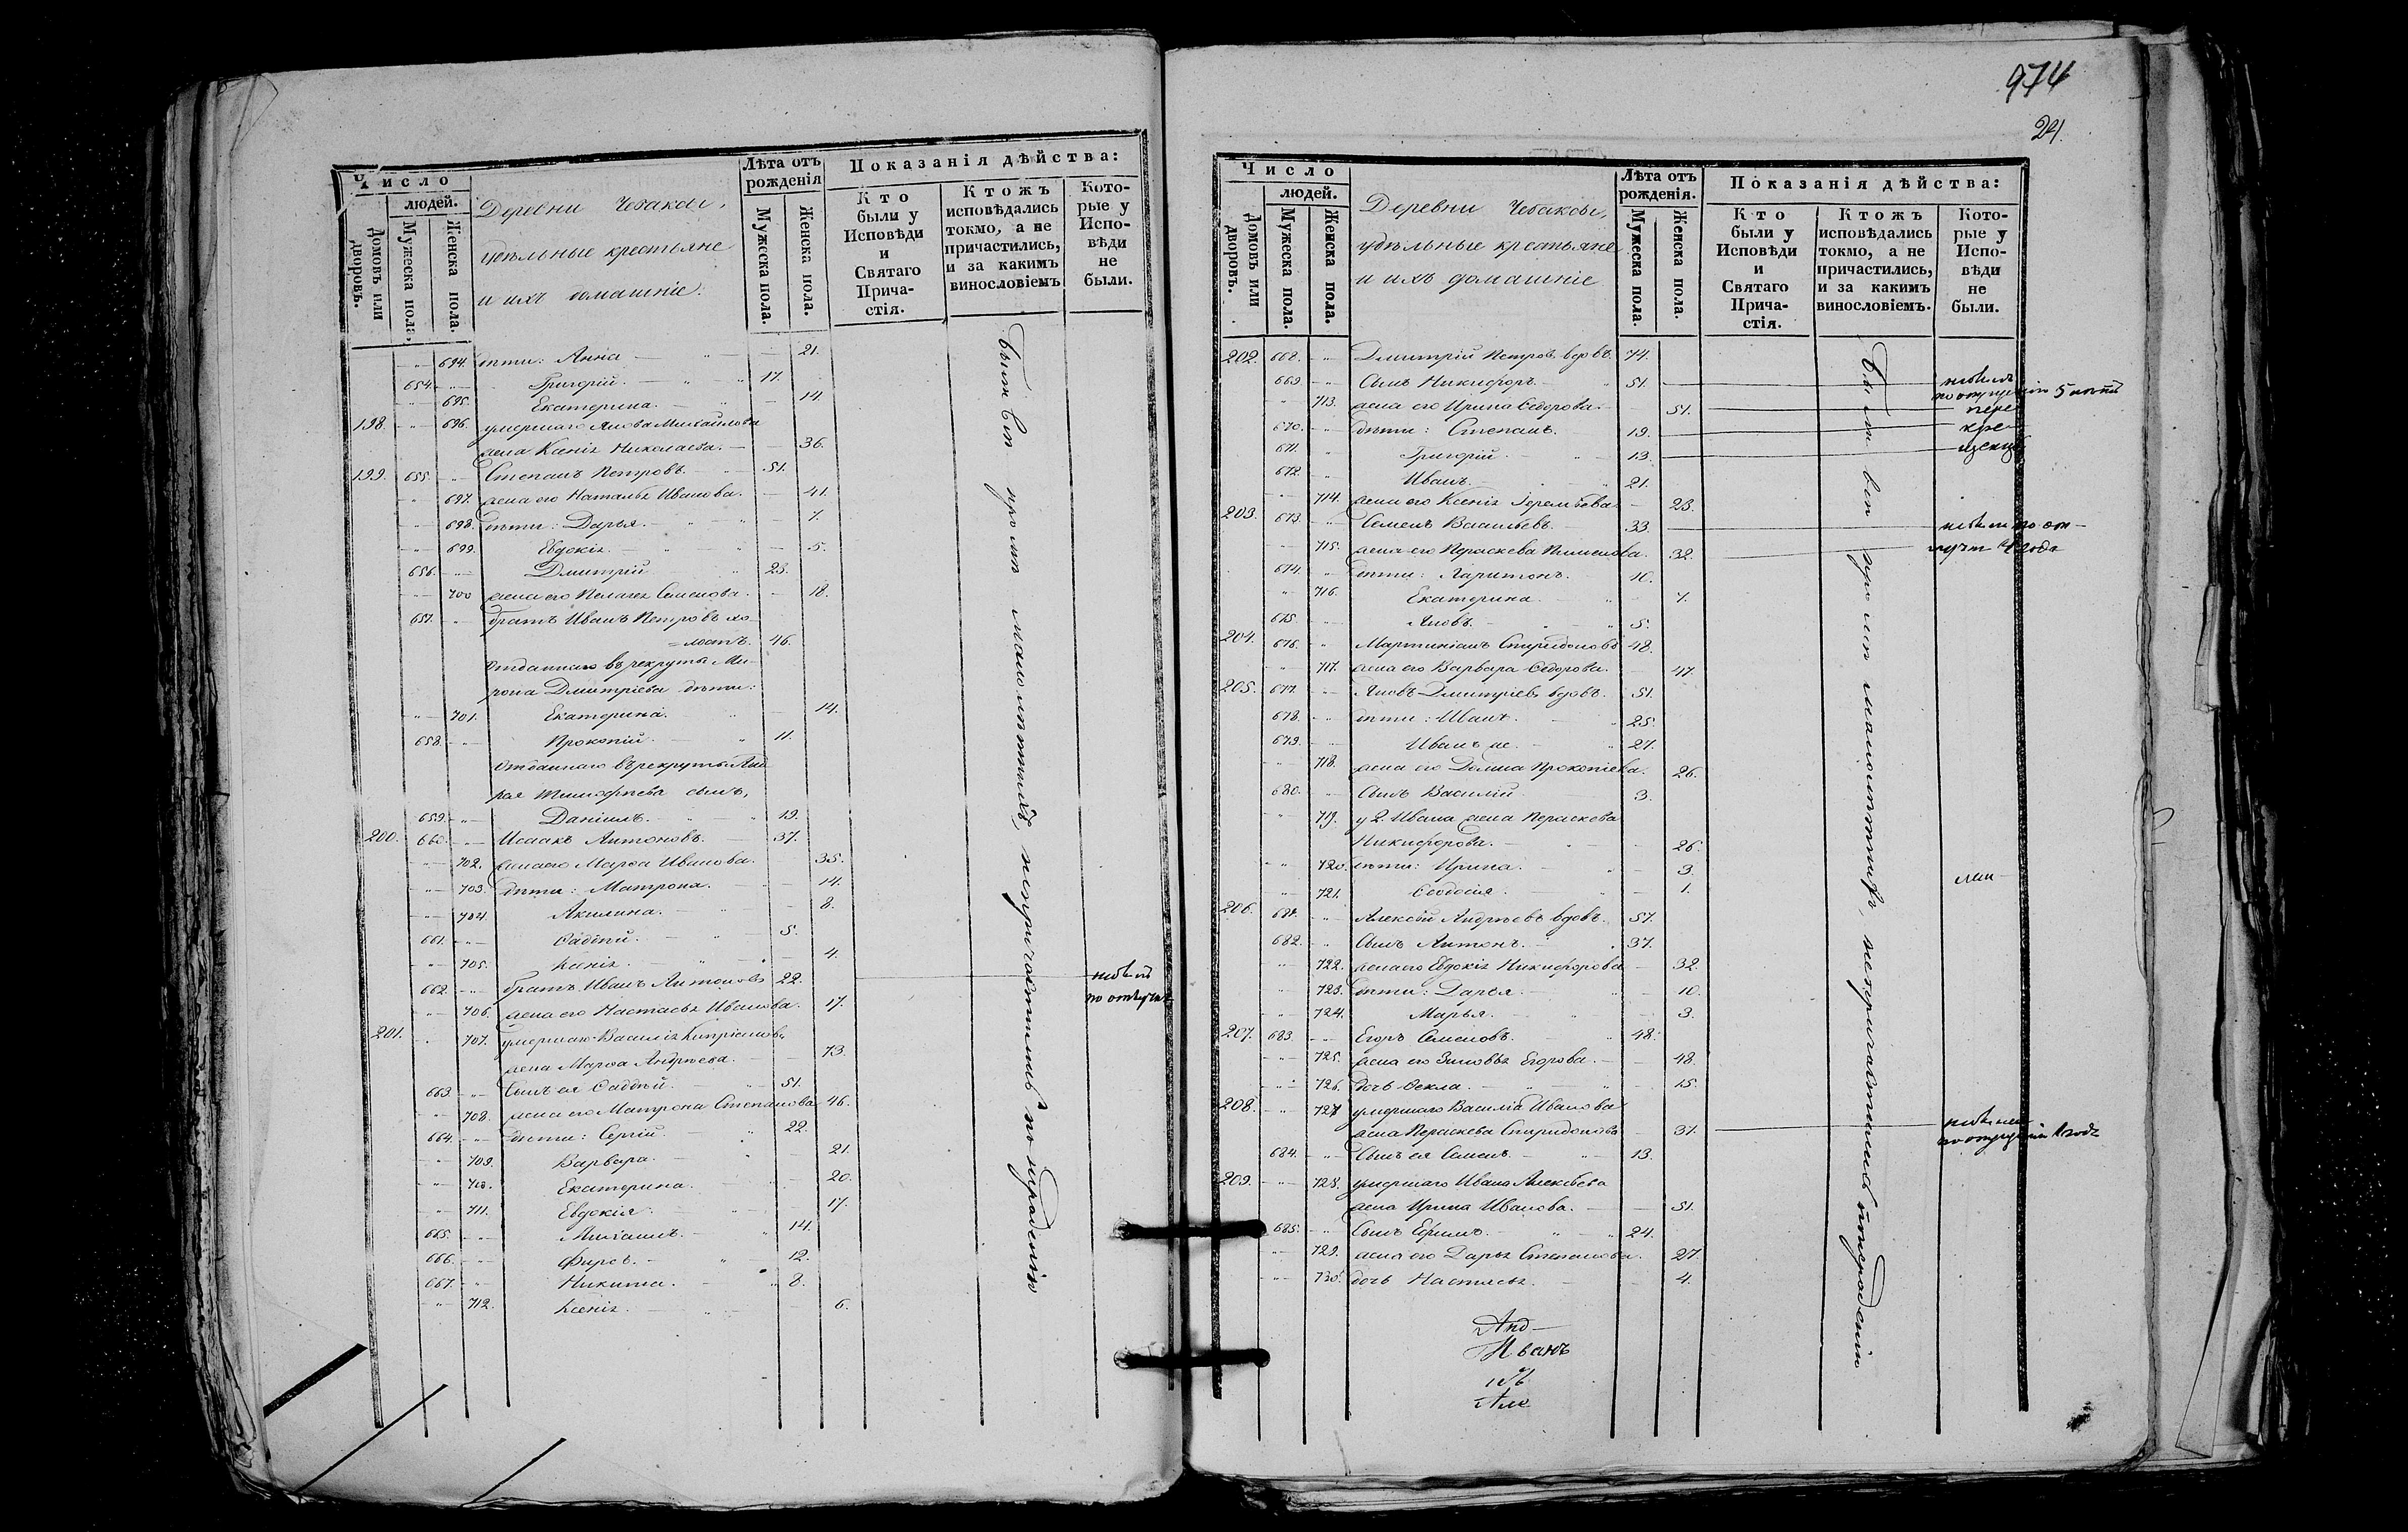 Число
людей.
Домовъ или дворовъ.
Мужеска пола.
Женска пола.
Деревни Чебаковы,
удѣльные крестьяне
и ихъ домашніе.
Лѣта отъ рожденія
Мужеска пола.
Женска пола.
Показанія дѣйства:
Кто были у Исповѣди и Святаго Причастія.
Ктожъ исповѣдались токмо, а не причастились, и за какимъ винословіемъ
Которые у Исповѣди не были.
694. дѣти: Анна 21.
654. Григорій. 17.
695. Екатерина. 14.
198. 696. умершаго Якова Михайлова
жена Ксенія Николаева. 36.
199. 655. Степанъ Петровъ. 51.
697. жена его Наталья Иванова. 41.
698. дѣти: Дарья. 7.
699. Евдокія. 5.
656. Дмитрій 23.
700 жена его Пелагея Семенова. 18.
657. братъ Иванъ Петровъ хо
=лостъ. 46.
Отданнаго въ рекруты Ми-
рона Дмитріева дѣти:
701. Екатерина. 14.
658. Прокопій. 11.
Отданнаго въ рекруты Анд
рея Тимофѣева сынъ,
659. Даніилъ. 19.
200. 660. Исаакъ Антоновъ. 37.
702. жена его Марѳа Иванова. 35.
703. дѣти: Матрона. 14.
704. Акилина. 8.
661. Ѳаддѣй. 5.
705. Ксенія. 4.
662. братъ Иванъ Антоновъ 22. небылъ
по отлучкѣ
706. жена его Настасья Иванова. 17.
201. 707. умершаго Василія Кипріанова
жена Марѳа Андрѣева. 73.
663. сынъ ея Ѳаддѣй. 51.
708. жена его Матрона Степанова 46.
664. дѣти: Сергій. 22.
709. Варвара. 21.
710. Екатерина. 20.
711. Евдокія. 17.
665. Михаилъ. 14.
666. Фирсъ. 12.
667. Никита. 8.
712. Ксенія. 6.
Были всѣ кромѣ малолѣтнихъ, непричастились по нерадѣнію
974
24.
Число
людей.
Домовъ или дворовъ.
Мужеска пола.
Женска пола.
Деревни Чебаковы,
удѣльные крестьяне
и ихъ домашніе
Лѣта отъ рожденія.
Мужеска пола.
Женска пола.
Показанія дѣйства:
Кто были у Исповѣди и Святаго Причастія.
Ктожъ исповѣдались токмо, а не причастились, и за какимъ винословіемъ.
Которые у Исповѣди не были.
202. 668. Дмитрій Петровъ вдовъ 74.
669. сынъ Никифоръ. 51. небылъ
5
713. жена его Ирина Ѳедорова. 51.
670. дѣти: Степанъ. 19.
671. Григорій. 13.
672. Иванъ. 21.
714. жена его Ксенія Іеремѣева 23.
203. 673. Семенъ Васильевъ. 33. небыли по от-
715. жена его Параскева Пименова. 32. года
674. дѣти: Харитонъ. 10.
716. Екатерина. 7.
675. Яковъ. 5.
204. 676. Мартиніанъ Спиридоновъ 48.
717. жена его Варвара Ѳедорова. 47.
205. 677. Яковъ Дмитріевъ вдовъ. 51.
678. дѣти: Иванъ. 25.
679. Иванъ же. 21.
718. жена его Домна Прокопіева. 26.
680. сынъ Василій 3.
719. у 2. Ивана жена Параскева
Никифорова. 26.
720. дѣти: Ирина. 3.
721. Ѳеодосія. 1.
206. 681. Алексѣй Андрѣевъ вдовъ. 57.
682. сынъ Антонъ. 37.
722. жена его Евдокія Никифорова 32.
723. дѣти: Дарья. 10.
724. Марья. 3.
207. 683. Егоръ Семеновъ. 48.
725. жена его Зиновья Егорова. 48.
726. дочь Ѳекла. 15.
208. 727 умершаго Василія Иванова
жена Параскева Спиридонова 37. небыла
684. сынъ ея Семенъ. 13.
209. 728. умершаго Ивана Алексѣева
жена Ирина Иванова. 51.
685. сынъ Ефимъ. 24.
729. жена его Дарья Степанова. 27.
730. дочь Настасья. 4.
Были всѣ кромѣ малолѣтнихъ, непричастились по нерадѣнію
Анд
Иванъ
Але